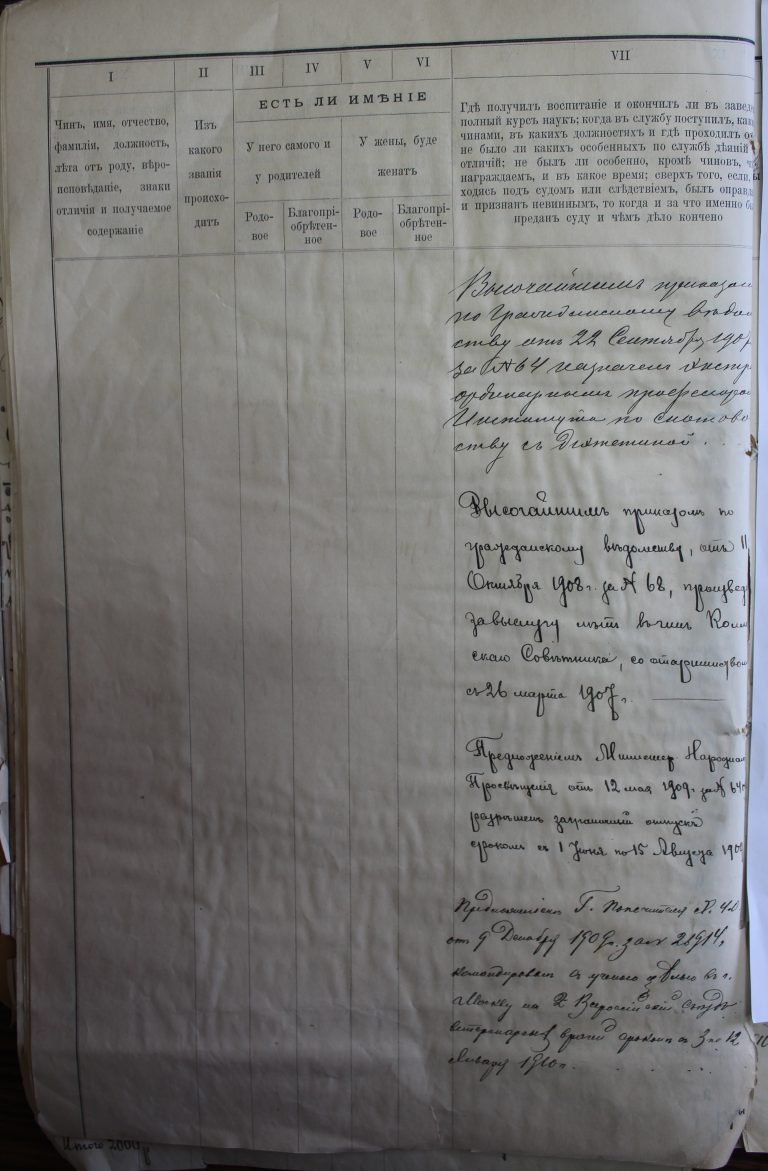 I
II
III
IV
V
VI
VII
Чинъ, имя, отчество,
фамилія, должность,
лѣта отъ роду, вѣро-
исповѣданіе, знаки
отличія и получаемое
содержаніе
Изъ
какого
званія
происхо-
дитъ
ЕСТЬ ЛИ ИМѢНІЕ
У него самого и
у родителей
У жены, буде
женатъ
Родо-
вое
Благопрі-
обрѣтен-
ное
Родо-
вое
Благопрі-
обрѣтен-
ное
Гдѣ получилъ воспитаніе и окончилъ ли въ завед
полный курсъ наукъ; когда въ службу поступилъ, как
чинами, въ какихъ должностяхъ и гдѣ проходилъ о
не было ли какихъ особенныхъ по службѣ дѣяній
отличій; не былъ ли особенно, кромѣ чиновъ, ч
награждаемъ, и въ какое время; сверхъ того, если,
ходясь подъ судомъ или слѣдствіемъ, былъ оправд
и признанъ невиннымъ, то когда и за что именно б
преданъ суду и чѣмъ дѣло кончено
Высочайшимъ приказом
по Гражданскому вѣдом
ству отъ 22 Сентября 190
за № 64 назначенъ экстр
ординарнымъ профессоро
Института по скотово
ству съ Діэтетикой.
Высочайшимъ приказомъ по
гражданскому вѣдомству, отъ 11
Октября 1908 г. за № 68, произвед
за выслугу лѣтъ въ чинъ Колл
скаго Совѣтника, со старшинством
съ 26 марта 1907 г.
Предложеніемъ Министер. Народна
Просвѣщенія отъ 12 мая 1909 г. за №
разрѣшенъ заграничный отпускъ
срокомъ съ 1 Іюня по 15 Августа 190
Предложеніемъ Г. Попечителя
отъ 9 Декабря 1909 г. за № 28914,
командированъ съ ученою цѣлью въ г.
Москву на 2 Всероссійскій съѣздъ
ветеринарн. врачей срокомъ съ 3 по 12
Января 1910 г.
Итого 2000 р